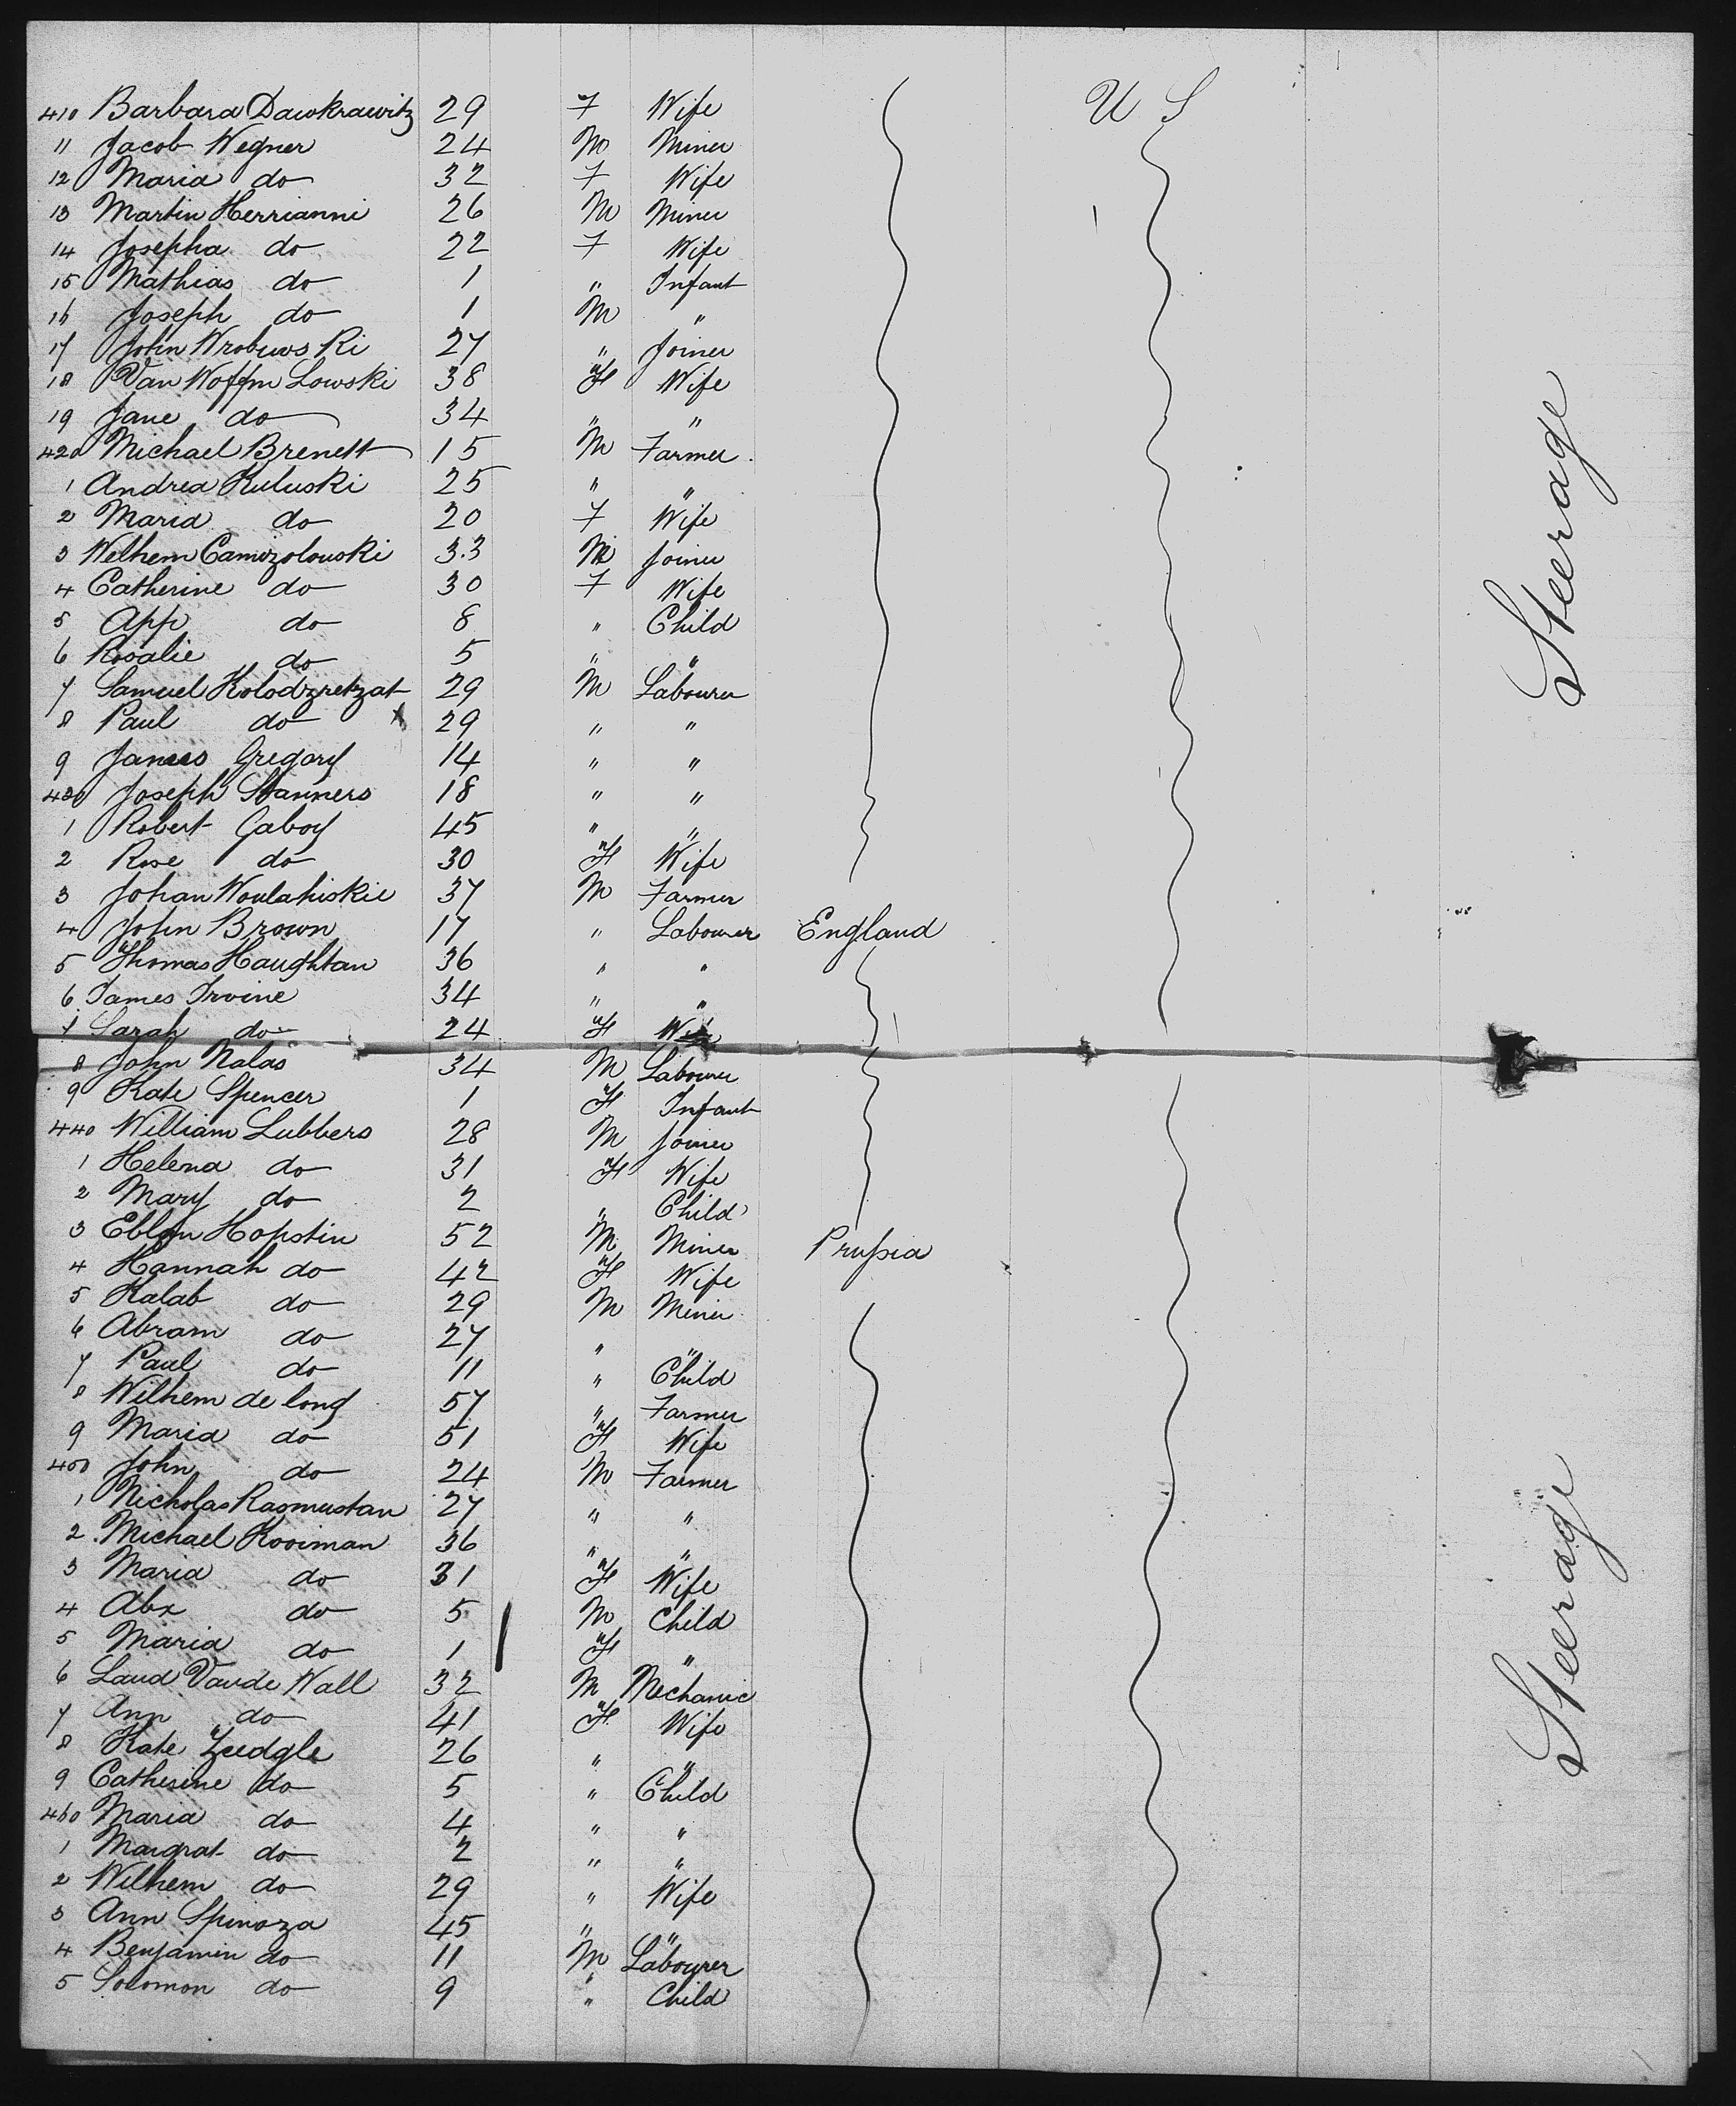 U S
410 Barbara Dawkrawitz 29 F Wife
11 Jacob Wegner 24 M Miner
12 Maria do 32 F Wife
13 Martin Herrianni 26 M Miner
14 Josepha do 22 F Wife
15 Mathias do 1 " Infant
16 Joseph do 1 M "
17 John Wrobuws Ki 27 " Joiner
18 Van Woffm Lowski 38 F Wife
19 Jane do 34 " "
420 Michael Brenett 15 M Farmer
1 Andrea Kuluski 25 " "
2 Maria do 20 F Wife
3 Welhem Camizolouski 33 M Joiner
4 Catherine do 30 F Wife
5 App do 8 " Child
6 Rosalie do 5 " "
7 Samuel Kolodzretzat 29 M Labourer
8 Paul do 29 " "
9 James Gregory 14 " "
430 Joseph Stanners 18 " "
1 Robert Gaboy 45 " "
2 Rose do 30 F Wife
3 Johan Woulahiskie 37 M Farmer
4 John Brown 17 " Labourer England
5 Thomas Haughtan 36 " "
6 James Irvine 34 " "
7 Sarah do 24 F Wife
8 John Nalas 34 M Labourer
9 Kate Spencer 1 F Infant
440 William Lubbers 28 M Joiner
1 Helena do 31 F Wife
2 Mary do 2 " Child
3 Eblom Hopstin 52 M Miner Prussia
4 Hannah do 42 F Wife
5 Kalab do 29 M Miner
6 Abram do 27 " "
7 Paul do 11 " Child
8 Wilhem de long 57 " Farmer
9 Maria do 51 F Wife
450 John do 24 M Farmer
1 Nicholas Rasmustan 27 " "
2 Michael Kooiman 36 " "
3 Maria do 31 F Wife
4 Abx do 5 M Child
5 Maria do 1 F "
6 Laud Vande Wall 32 M Mechanic
7 Ann do 41 F Wife
8 Kate Zeedgle 26 " "
9 Catherine do 5 " Child
460 Maria do 4 " "
1 Margrat do 2 " "
2 Wilhem do 29 " Wife
3 Ann Spinoza 45 " "
4 Benjamin do 11 M Labourer
5 Solomon do 9 " Child
Steerage
Steerage